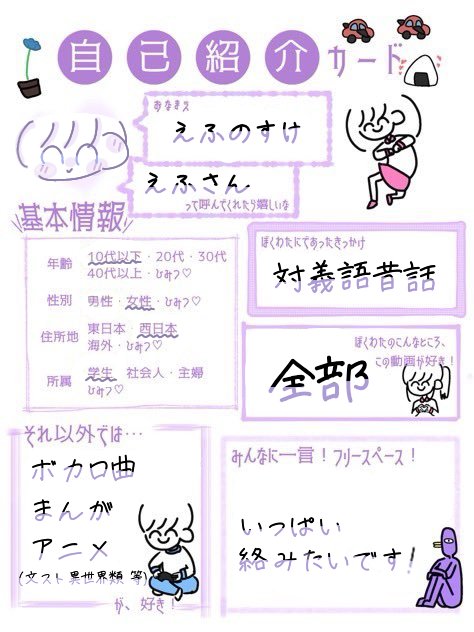 自己紹介カード
おなまえ
えふのすけ
えふさん
って呼んでくれたら嬉しいな
基本情報
年齢 10代以下・20代・30代
40代以上・ひみつ♡
性別 男性・女性・ひみつ♡
住所地 東日本・西日本
海外・ひみつ♡
所属 学生 社会人・主婦
ひみつ♡
ぼくわたにであったきっかけ
対義語昔話
ぼくわたのこんなところ、
この動画が好き！
全部
それ以外では…
ボカロ曲
まんが
アニメ
(文スト 異世界類 等)
が、好き！
みんなに一言！フリースペース！
いっぱい
絡みたいです！